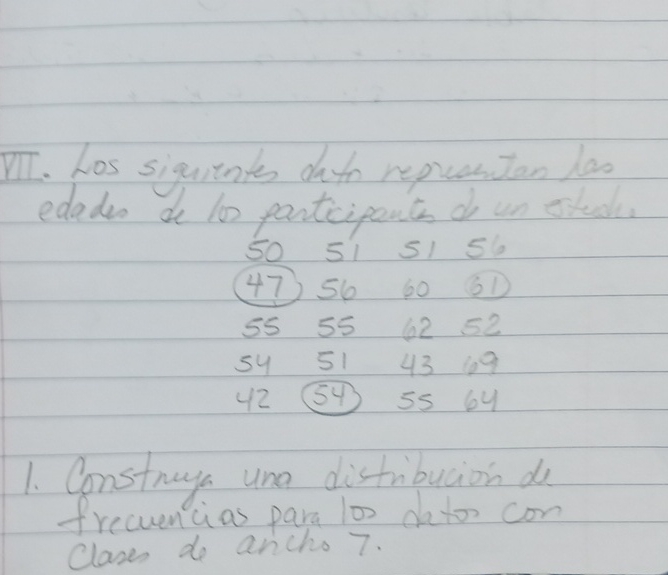 VII. Los siguientes dato representan las
edades de los participantes de un estudio.
50 51 51 56
47 56 60 61
55 55 62 52
54 51 43 69
42 54 55 64
1. Construya una distribución de
frecuencias para los datos con
Clases de ancho 7.